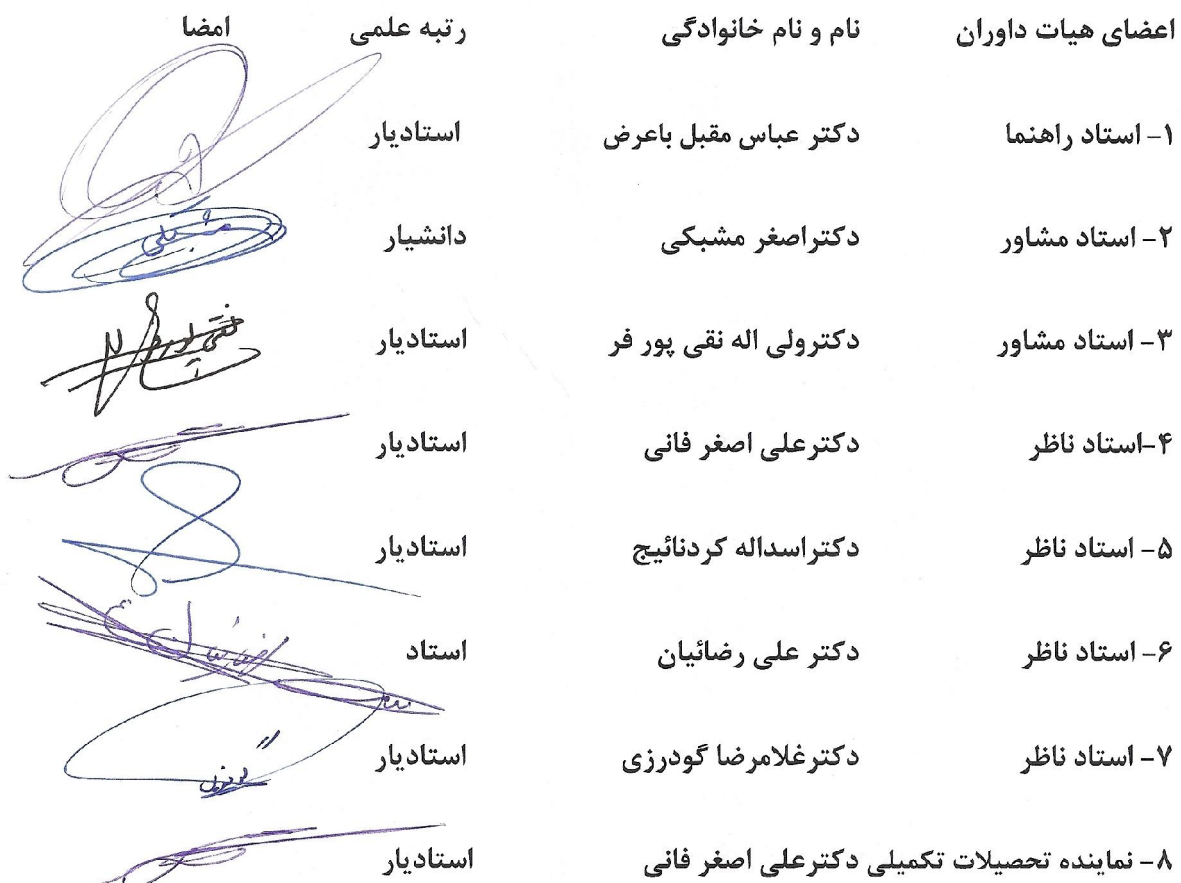 اعضای هیات داوران نام و نام خانوادگی رتبه علمی امضا
۱- استاد راهنما دکتر عباس مقبل باعرض استادیار
۲- استاد مشاور دکتراصغر مشبکی دانشیار
۳- استاد مشاور دکترولی اله نقی پور فر استادیار
۴-استاد ناظر دکترعلی اصغر فانی استادیار
۵- استاد ناظر دکتراسداله کردنائیج استادیار
۶- استاد ناظر دکتر علی رضائیان استاد
۷- استاد ناظر دکترغلامرضا گودرزی استادیار
۸- نماینده تحصیلات تکمیلی دکترعلی اصغر فانی استادیار